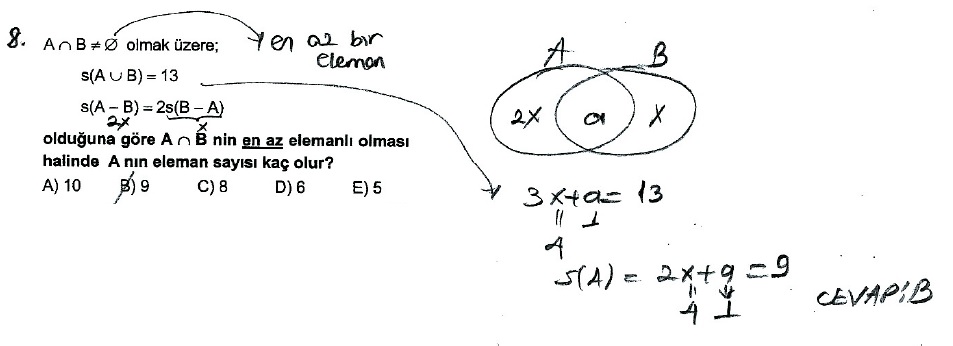 8. A∩B ≠ Ø olmak üzere;
→ en az bir
eleman
s(A ∪ B) = 13
s(A – B) = 2s(B – A)
2x x
olduğuna göre A ∩ B nin en az elemanlı olması
halinde A nın eleman sayısı kaç olur?
A) 10 B) 9 C) 8 D) 6 E) 5
A B
2x a x
3x+a= 13
4 1
s(A) = 2x+a =9
4 1
CEVAP:B